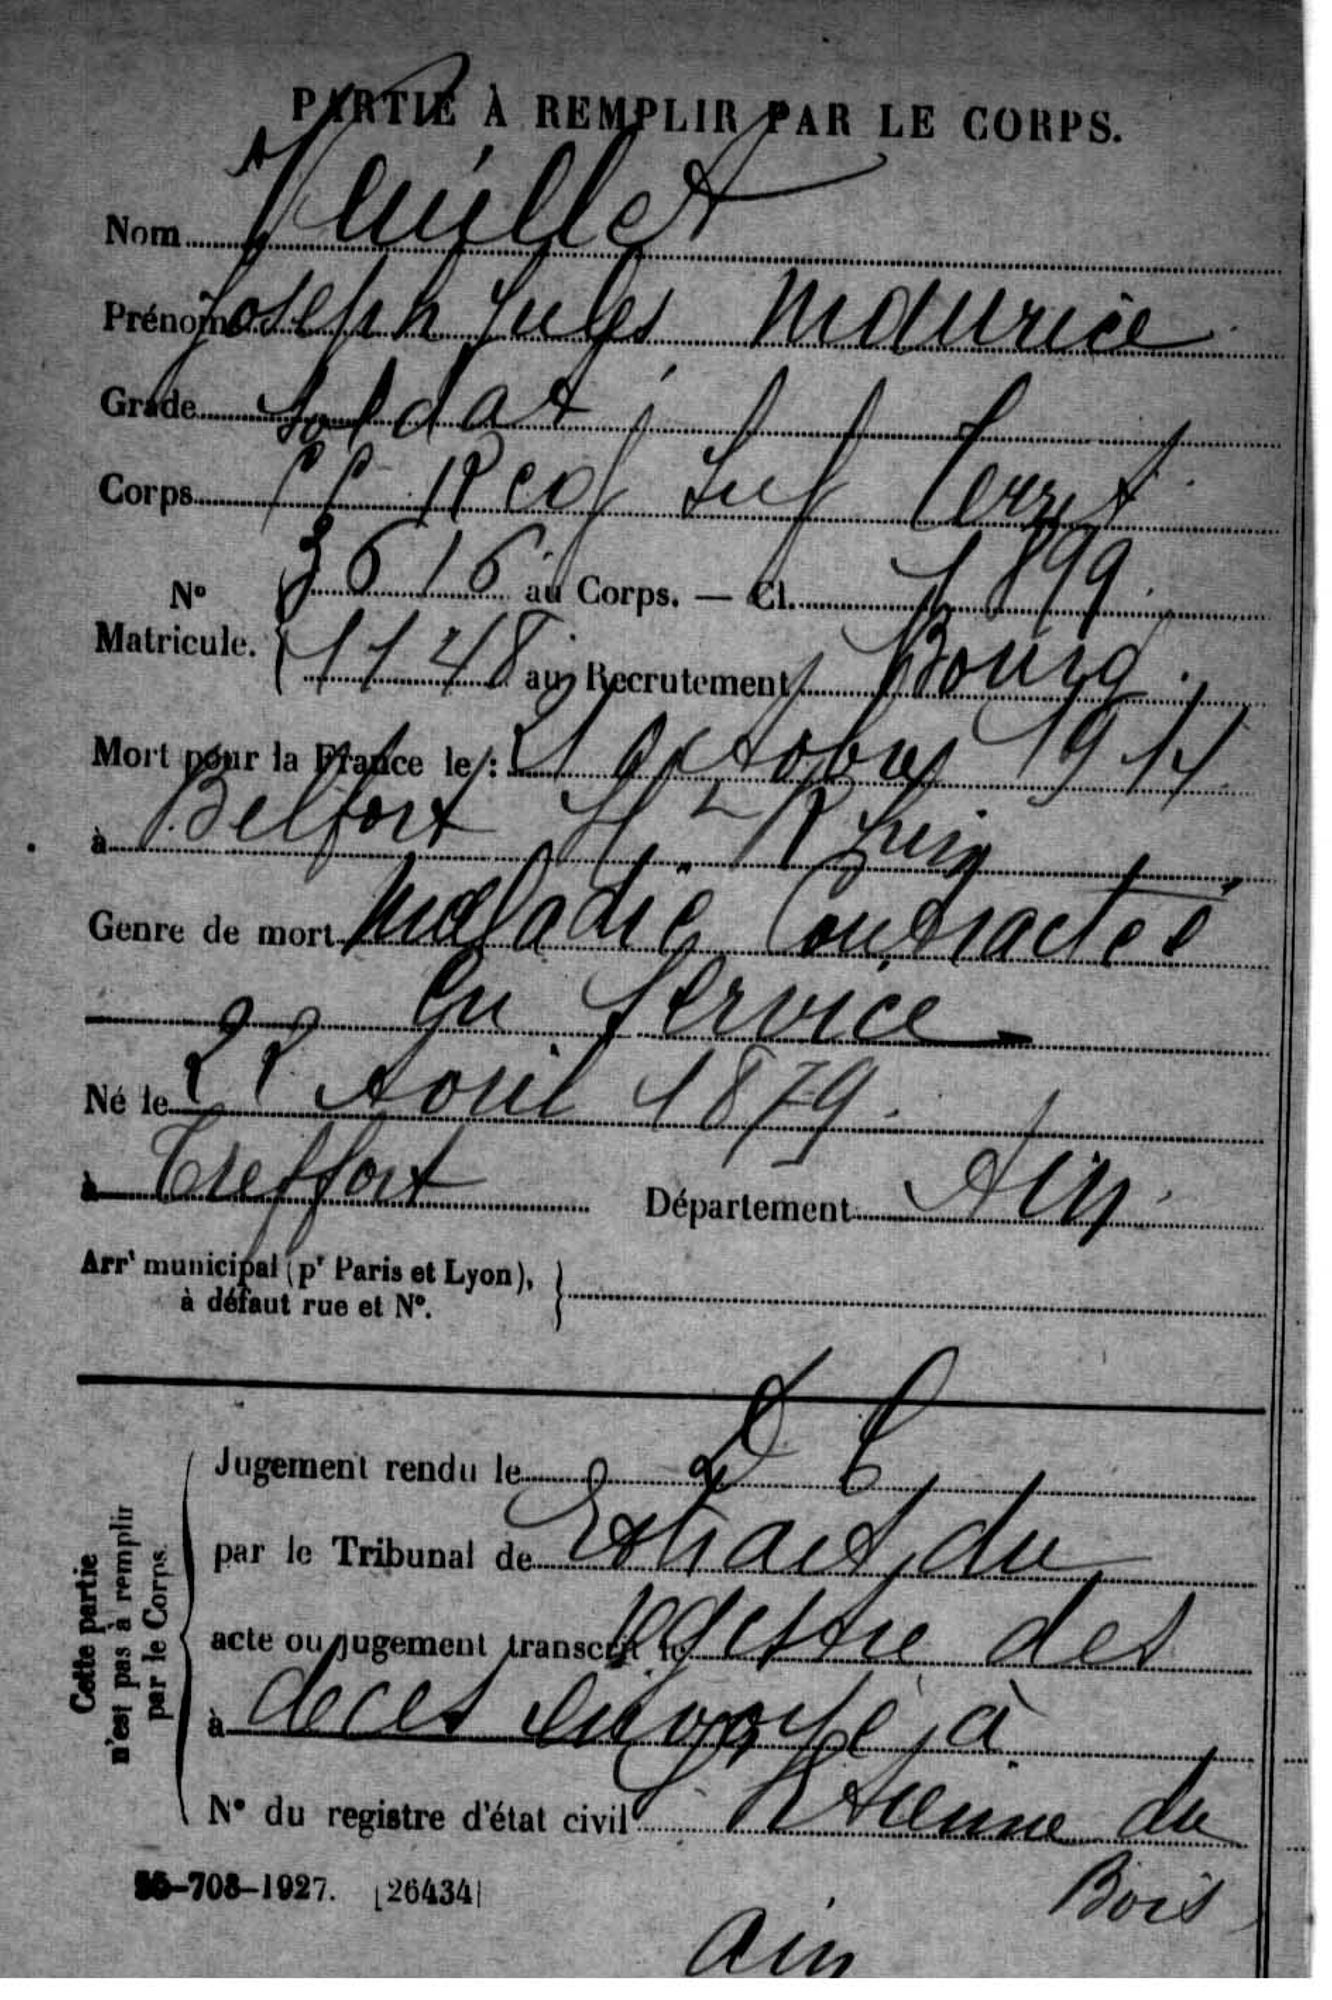 PARTIE À REMPLIR PAR LE CORPS.
Nom Veuillet
Prénoms Joseph Jules Maurice
Grade Soldat
Corps 55 Reg Inf Territ
N° Matricule. { 3616 au Corps. — Cl. 1899.
1148 au Recrutement Bourg.
Mort pour la France le : 21 Octobre 1914
à Belfort Ht Rhin
Genre de mort Maladie Contractée
En Service
Né le 22 Avril 1879.
à Treffort Département Ain.
Arrt municipal (pr Paris et Lyon),
à défaut rue et N°.
Cette partie
n'est pas à remplir
par le Corps.
Jugement rendu le
par le Tribunal de Extrait du
acte ou jugement transcrit le registre des
à deces envoyé à
N° du registre d'état civil St Etienne du
Bois
-708-1927. [26434]
Ain